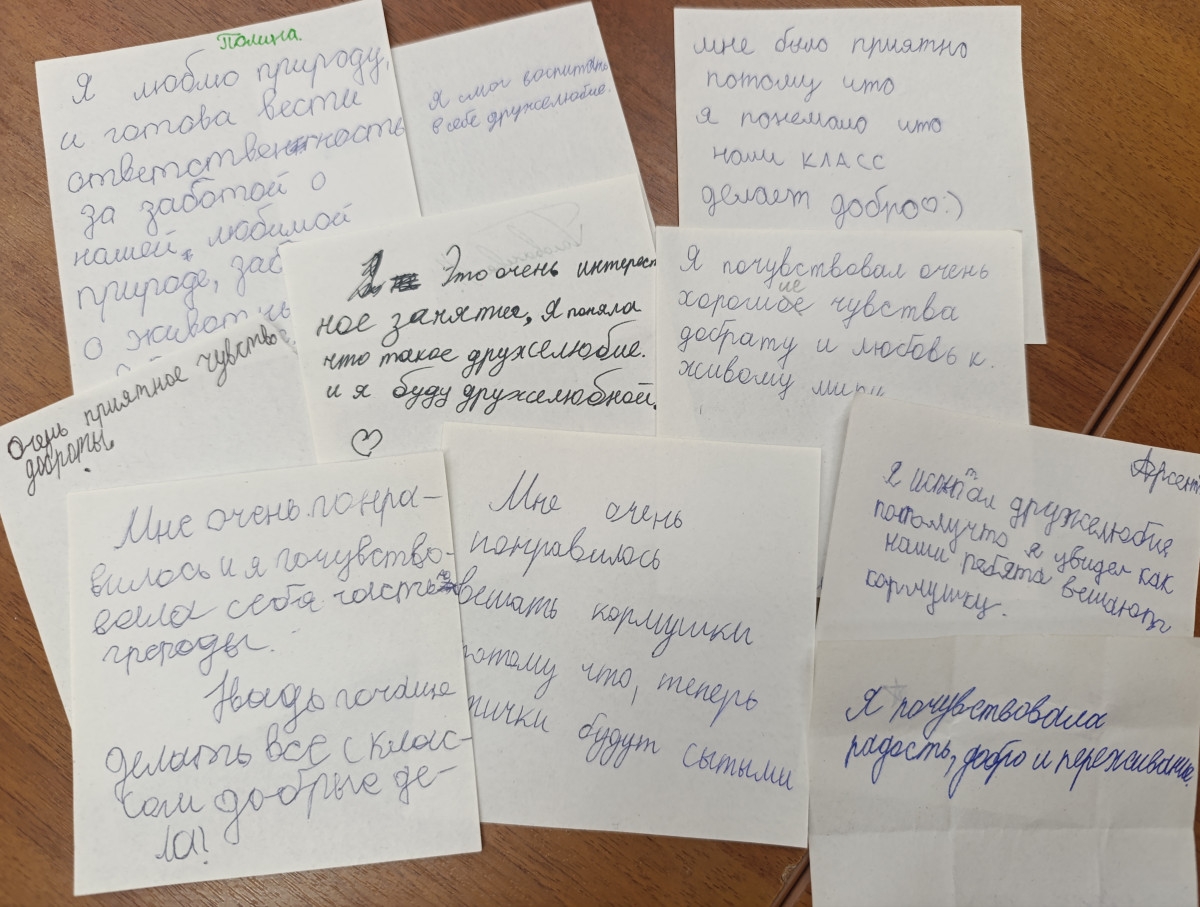 Полина
Я люблю природу,
и готова вести
ответственность
за заботой о
нашей любимой
природе, заб
о животны
Я смог воспитать
в себе дружелюбие.
мне было приятно
потому что
я понемаю что
наш класс
делает добро♡:)
Это очень интерест
ное занятие, Я поняла
что такое дружелюбие.
и я буду дружелюбной.
♡
Я почувствовал очень
хорошие чувства
доброту и любовь к
живому миру
Очень приятное чувство
доброты.
Мне очень понра-
вилось и я почувство-
вала себя часть
природы.
Надо почаще
делать все с клас-
сом добрые де-
ла!
Мне очень
понравилось
вешать кормушки
потому что, теперь
птички будут сытыми
Арсент
Я испытал дружелюбие
потомучто я увидел как
наши ребята вешают
кормушку.
Я почувствовала
радость, добро и переживание.